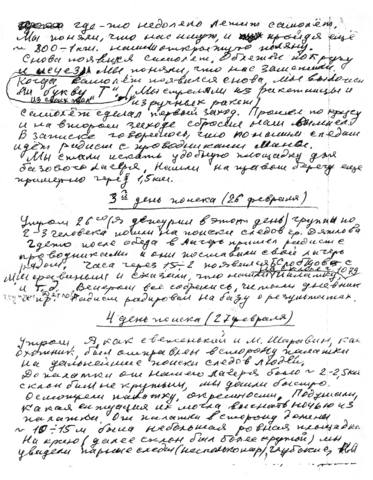 где-то недалеко летит самолёт.
Мы поняли, что нас ищут, и пройдя ещё
~ 800-1км. нашли открытую поляну.
Снова появился самолёт, облетел по кругу
и исчез. Мы поняли, что нас заметили.
Когда самолёт появился снова, мы
"букву Т" (Мы стреляли из ракетницы и
из ручных ракет)
Самолёт сделал первый заход. Прошел по кругу
и на втором заходе сбросил нам вымпел.
В записке говорилось, что по нашим следам
идёт радист с проводниками манси.
Мы стали искать удобную площадку для
базового лагеря. Нашли на правом берегу ещё
примерно через 1,5км.
3й день поиска (26 февраля)
Утром 26го (я дежурил в этот день) группы по
2-3 человека пошли на поиски следов гр. Дятлова
Где-то после обеда в лагерь пришел радист с
проводниками и они поставили свой лагерь
рядом. Часа через 1,5-2 появился Б. Слобцов с
М. и сказали, что нашли палатку
и т.д. Вечером все собрались, читали дневник
и пр. Радист радировал на базу о результатах.
4 день поиска (27 февраля)
Утром Я, как свеженький и М. Шаравин, как
охотник, был отправлен в сторону палатки
на дальнейшие поиски следов людей.
До палатки от нашего лагеря было ~ 2-2,5км
склон был не крутым, мы дошли быстро.
Осмотрели палатку, окрестности, Подумали,
какая ситуация их могла выгнать ночью из
палатки. От палатки в сторону долины
~ 10-15м была небольшая ровная площадка
На краю (далее склон был более крутой) мы
увидели парные следы (несколько пар), глубокие,